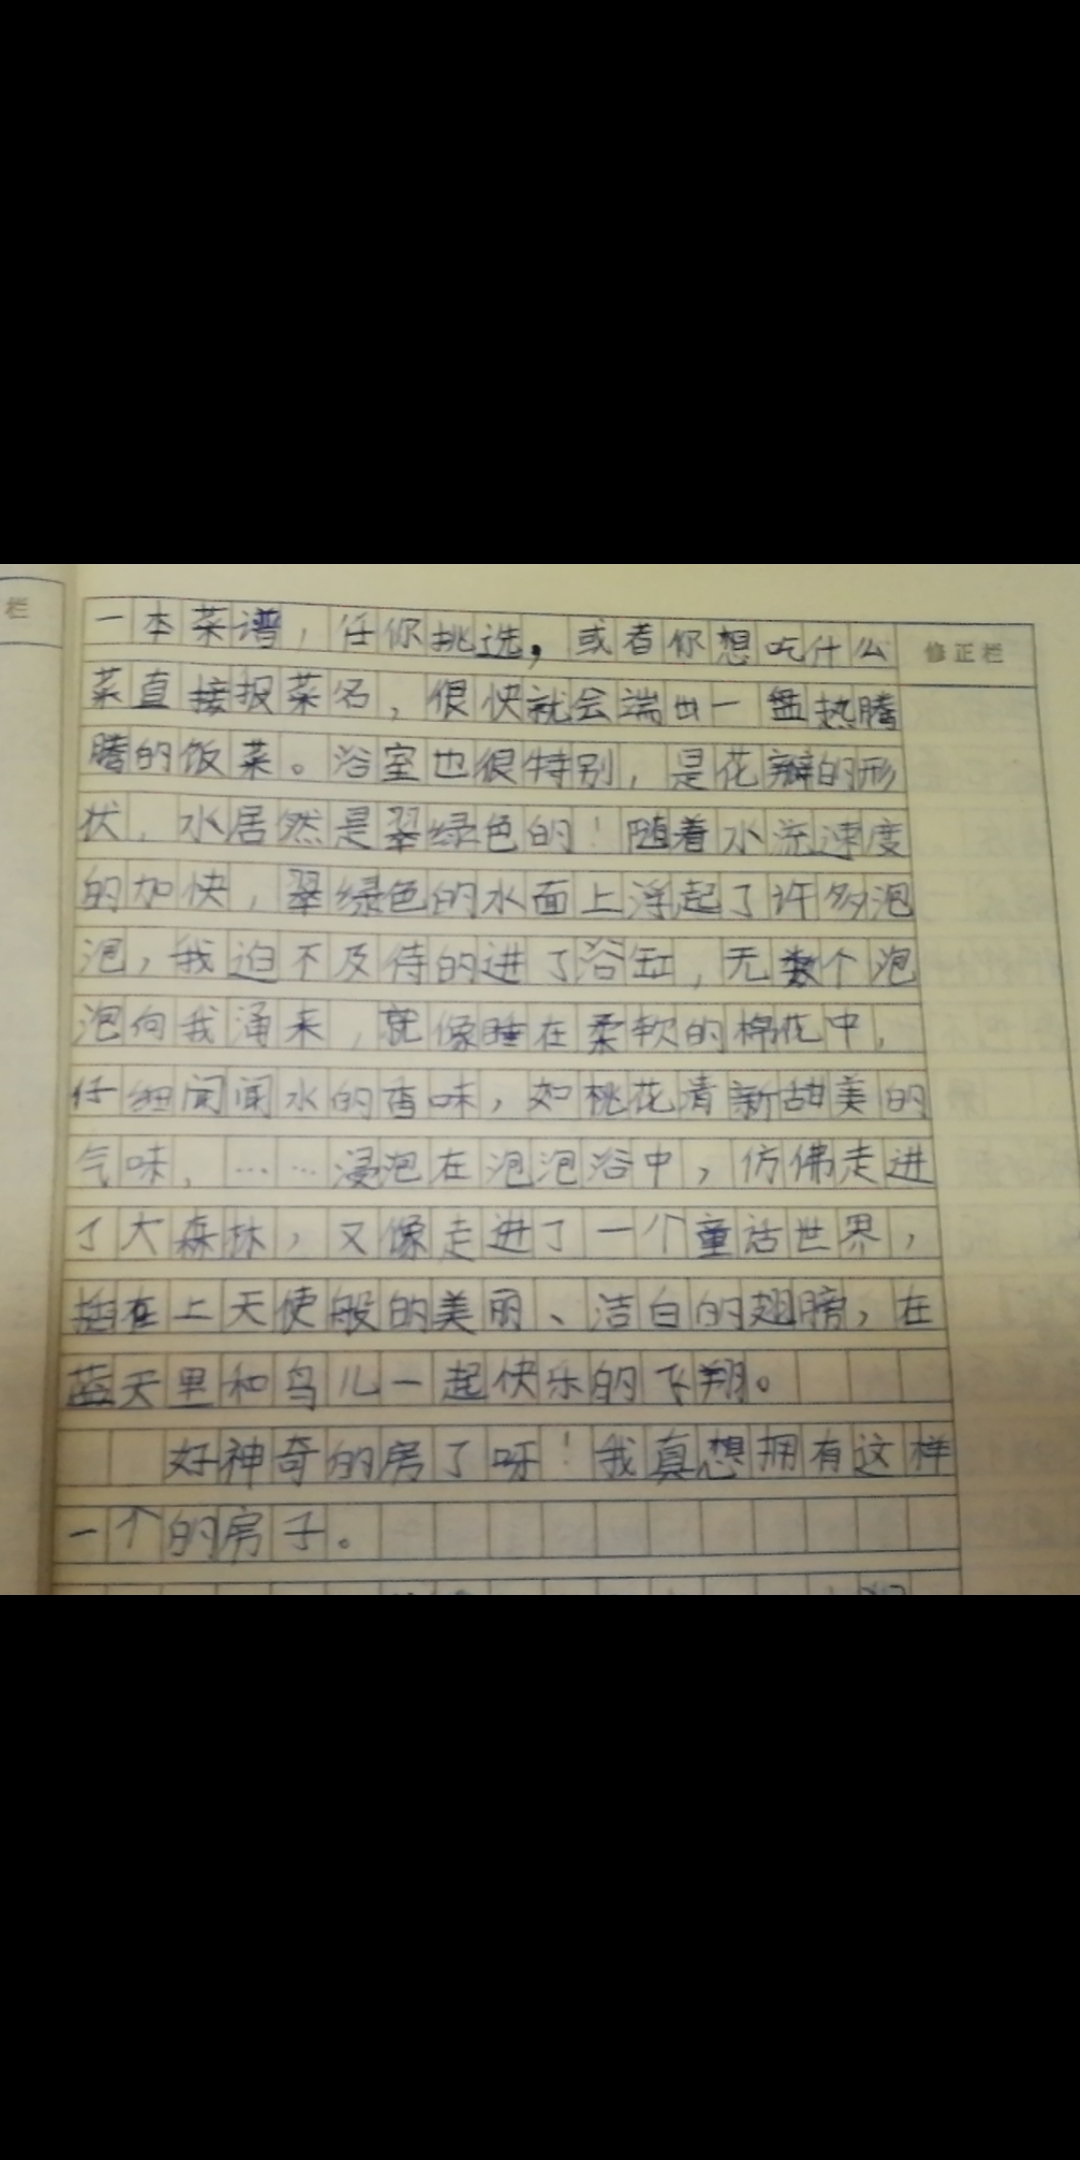 栏
修正栏
一本菜谱，任你挑选，或者你想吃什么
菜直接报菜名，很快就会端出一盘热腾
腾的饭菜。浴室也很特别，是花瓣的形
状，水居然是翠绿色的！随着水流速度
的加快，翠绿色的水面上浮起了许多泡
泡，我迫不及待的进了浴缸，无数个泡
泡向我涌来，就像睡在柔软的棉花中，
仔细闻闻水的香味，如桃花清新甜美的
气味，……浸泡在泡泡浴中，仿佛走进
了大森林，又像走进了一个童话世界，
插上天使般的美丽、洁白的翅膀，在
蓝天里和鸟儿一起快乐的飞翔。
好神奇的房了呀！我真想拥有这样
一个的房子。